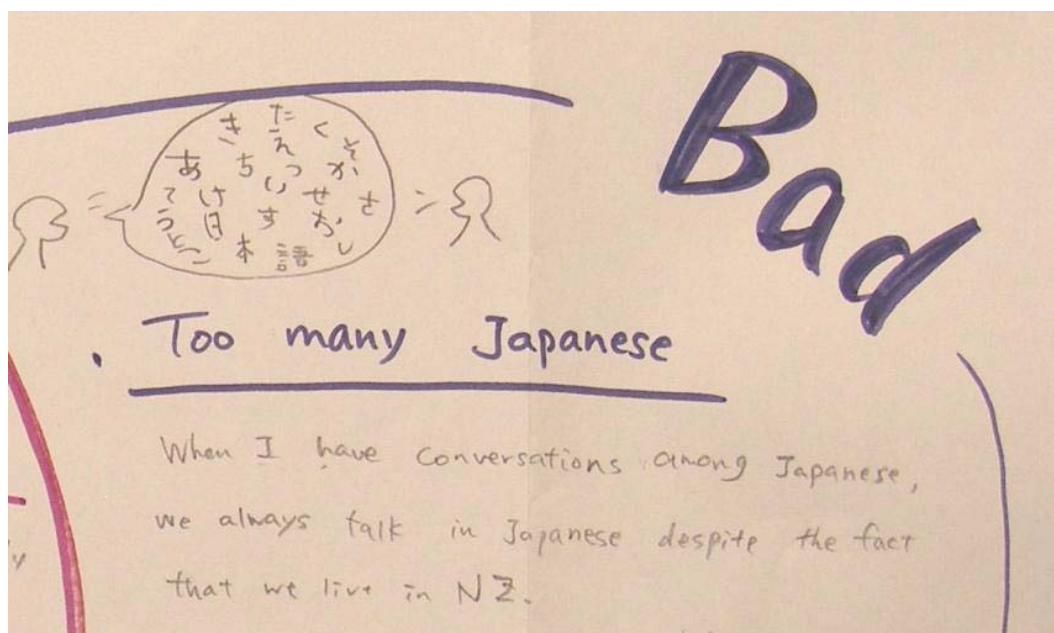 Bad
き た く
え そ
あ ち つ か
て け い せ さ
う 日 す お し
と こ 本 語
. Too many Japanese
When I have conversations among Japanese,
we always talk in Japanese despite the fact
that we live in NZ.